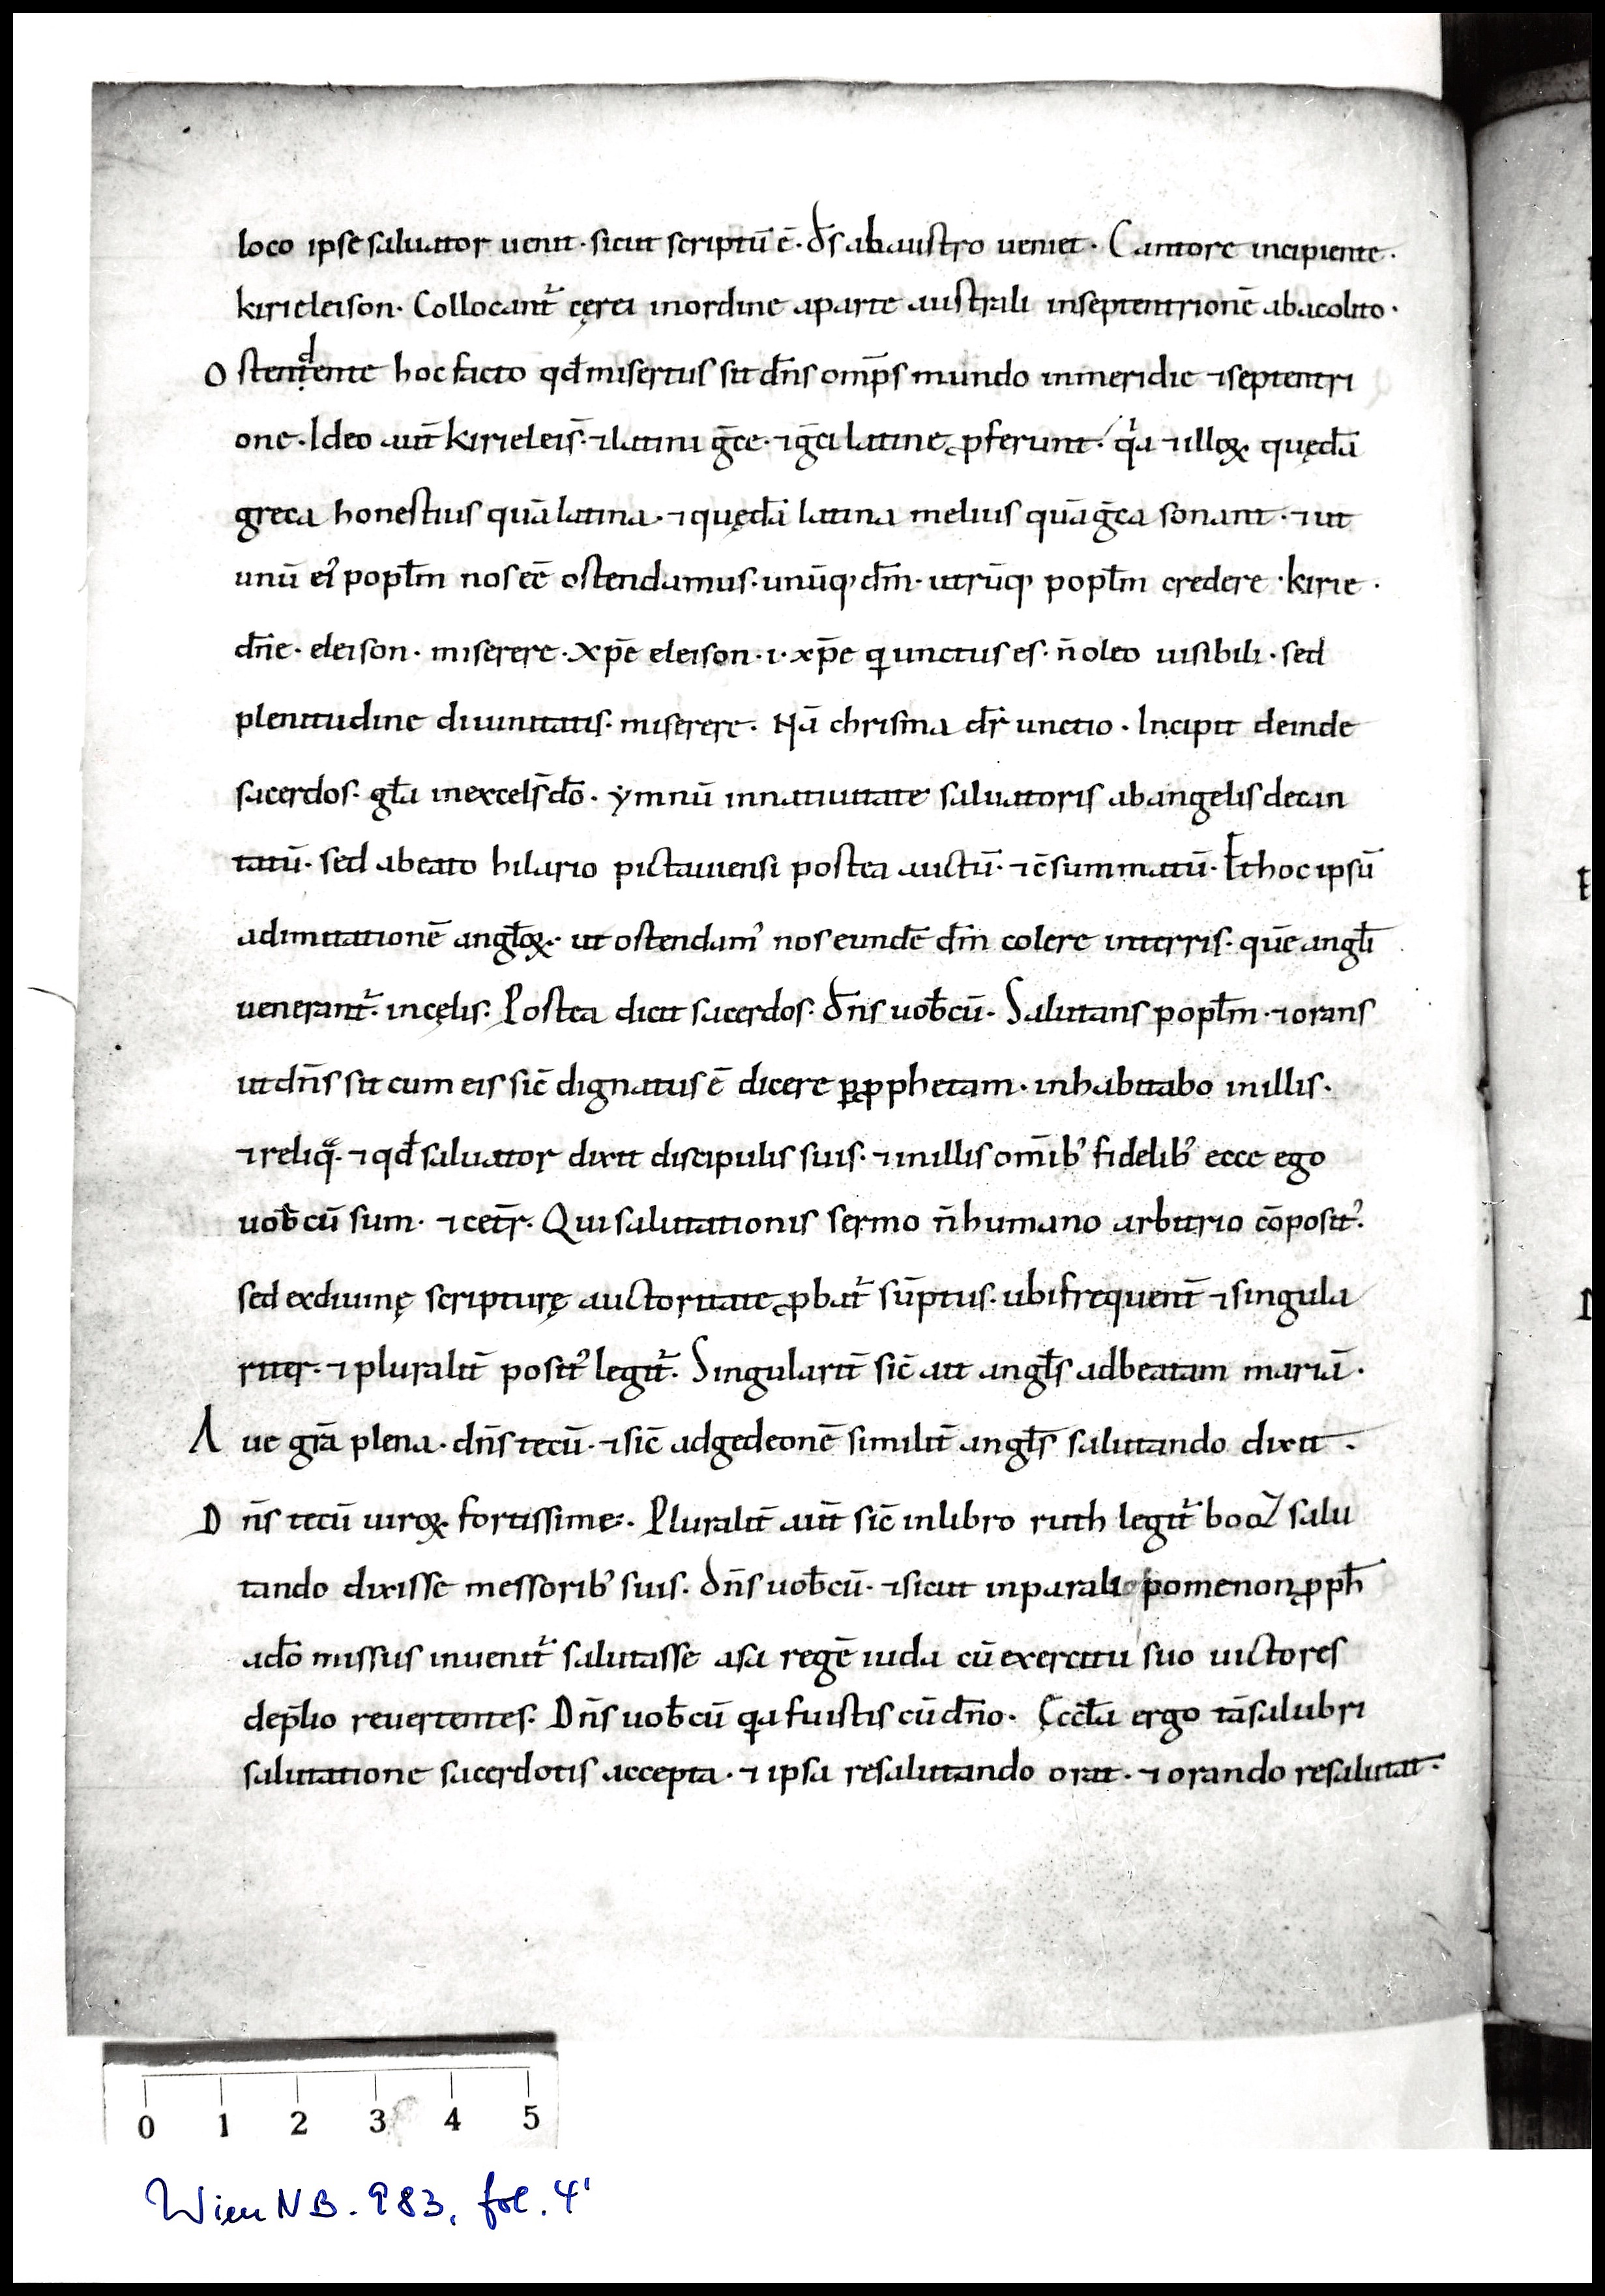 loco ipse saluator uenit · sicut scriptū ē · d̄s ab austro ueniet · Cantore incipiente ·
kirieleison · Collocant᷑ cęrei in ordine a parte australi in septentrionē ab acolito ·
Ostendente hoc facto qđ misertus sit dn̄s omp̄s mundo in meridie ⁊ septentri
one · Ideo aut̄ kirieleis̄ · ⁊ latini ḡce · ⁊ ḡci latine ꝓferunt · qⁱa ⁊ illoꝝ quędā
greca honestius quā latina · ⁊ quędā latina melius quā ḡca sonant · ⁊ ut
unū ei᾽ popl̄m nos eē ostendamus · unūq᾽ dm̄ · utrūq᾽ popl̄m credere · kirie ·
dn̄e · eleison · miserere · xp̄e eleison · i · xp̄e qui unctus es · n̄ oleo uisibili · sed
plenitudine diuinitatis · miserere · Nā chrisma dr̄ unctio · Incipit deinde
sacerdos · gl̄a in excels̄ dō · ymnū in natiuitate saluatoris ab angelis decan
tatū · sed a beato hilario pictauiensi postea auctū · ⁊ c̄summatū · Et hoc ipsū
ad imitationē angl̄oꝝ · ut ostendam᾽ nos eundē dm̄ colere in terris · quē angl̄i
uenerant᷑ · in cęlis · Postea dicit sacerdos · dn̄s uob̄cū · Salutans popl̄m · ⁊ orans
ut dn̄s sit cum eis sic̄ dignatus ē dicere ꝑ ꝓphetam · inhabitabo in illis ·
⁊ reliq̄ · ⁊ qđ saluator dixit discipulis suis · ⁊ in illis om̄ib᾽ fidelib᾽ ecce ego
uob̄cū sum · ⁊ cet̄r · Qui salutationis sermo n̄ humano arbitrio cōposit᾽ ·
sed ex diuinę scripturę auctoritate ꝓbat᷑ sūptus · ubi frequent̄ ⁊ singula
riter · ⁊ pluralit̄ posit᾽ legit᷑ · Singularit̄ sic̄ ait angl̄s ad beatam mariā ·
Aue grā plena · dn̄s tecū · ⁊ sic̄ ad gedeonē similit̄ angl̄s salutando dixit ·
Dn̄s tecū uiroꝝ fortissime · Pluralit̄ aut̄ sic̄ in libro ruth legit᷑ booz salu
tando dixisse messorib᾽ suis · dn̄s uob̄cū · ⁊ sicut in paralipomenon ꝓph̄
a dō missus inuenit᷑ salutasse asa regē iuda cū exercitu suo uictores
de p̄lio reuertentes · Dn̄s uob̄cū qa fuistis cū dn̄o · Ęccl̄a ergo tā salubri
salutatione sacerdotis accepta · ⁊ ipsa resalutando orat · ⁊ orando resalutat ·
0 1 2 3 4 5
Wien NB. 983, fol. 4'